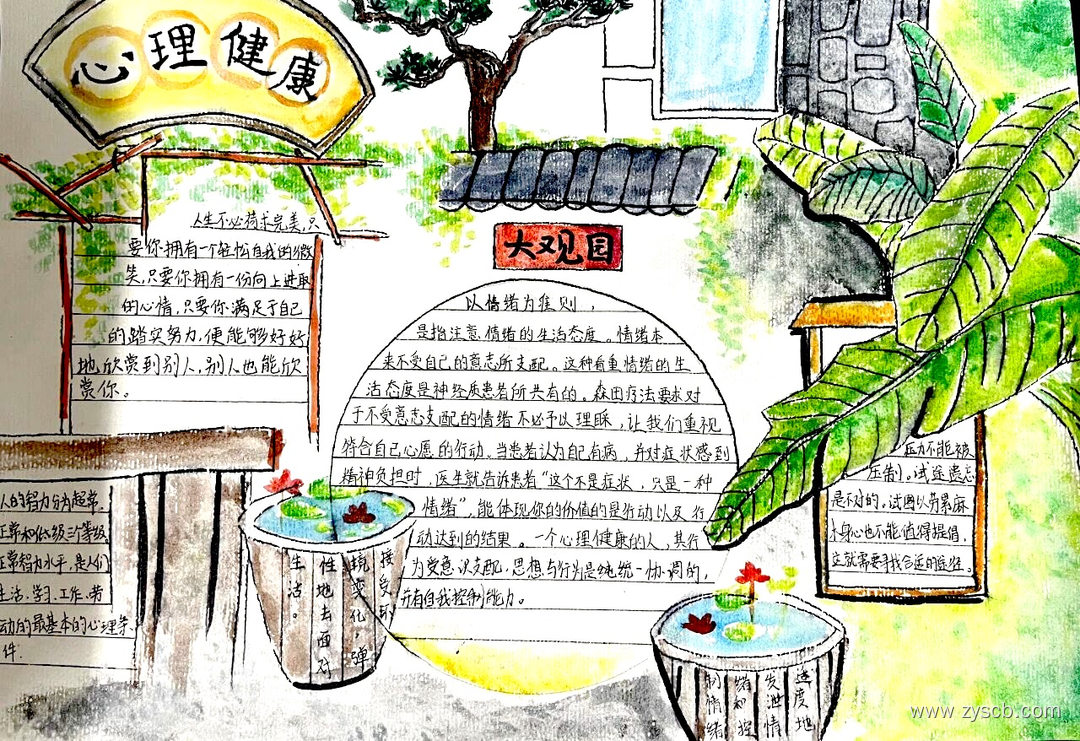 心理健康
人生不必苛求完美,只
要你拥有一个轻松自我的微
笑,只要你拥有一份向上进取
的心情,只要你满足于自己
的踏实努力,便能够好好
地欣赏到别人,别人也能欣
赏你。
大观园
以情绪为准则,
是指注意情绪的生活态度。情绪本
来不受自己的意志所支配。这种看重情绪的生
活态度是神经质患者所共有的。森田疗法要求对
于不受意志支配的情绪不必予以理睬,让我们重视
符合自己心愿的行动。当患者认为自己有病,并对症状感到
精神负担时,医生就告诉患者“这个不是症状,只是一种
情绪”,能体现你的价值的是行动以及行
动达到的结果。一个心理健康的人,其行
为受意识支配,思想与行为是统一协调的,
并有自我控制能力。
人的智力分为超常、
正常和低级三个等级
正常智力水平,是人们
生活、学习、工作、劳
动的最基本的心理条
件.
接受环
境变化,弹
性地去面对
生活。
压力不能被
压制。试
是不对的。试图以劳累麻
木身心也不能值得提倡,
这就需要寻找合适的途径。
适度地
发泄情
绪和控
制情绪
www.zyscb.com